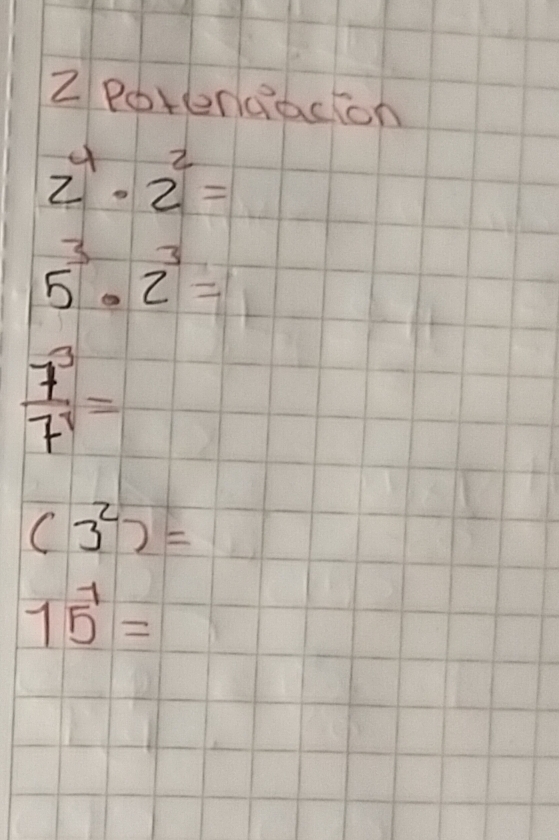 2 Potenciacion
2⁴ · 2² =
5³ · 2³ =
7³
7¹ =
(3²) =
15⁻¹ =